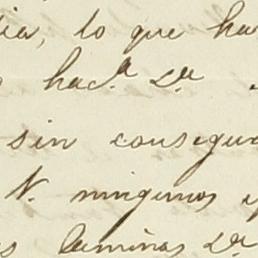 ia, lo que ha
hac.a Sr
sin consegu
N. ningunos y
laminas de